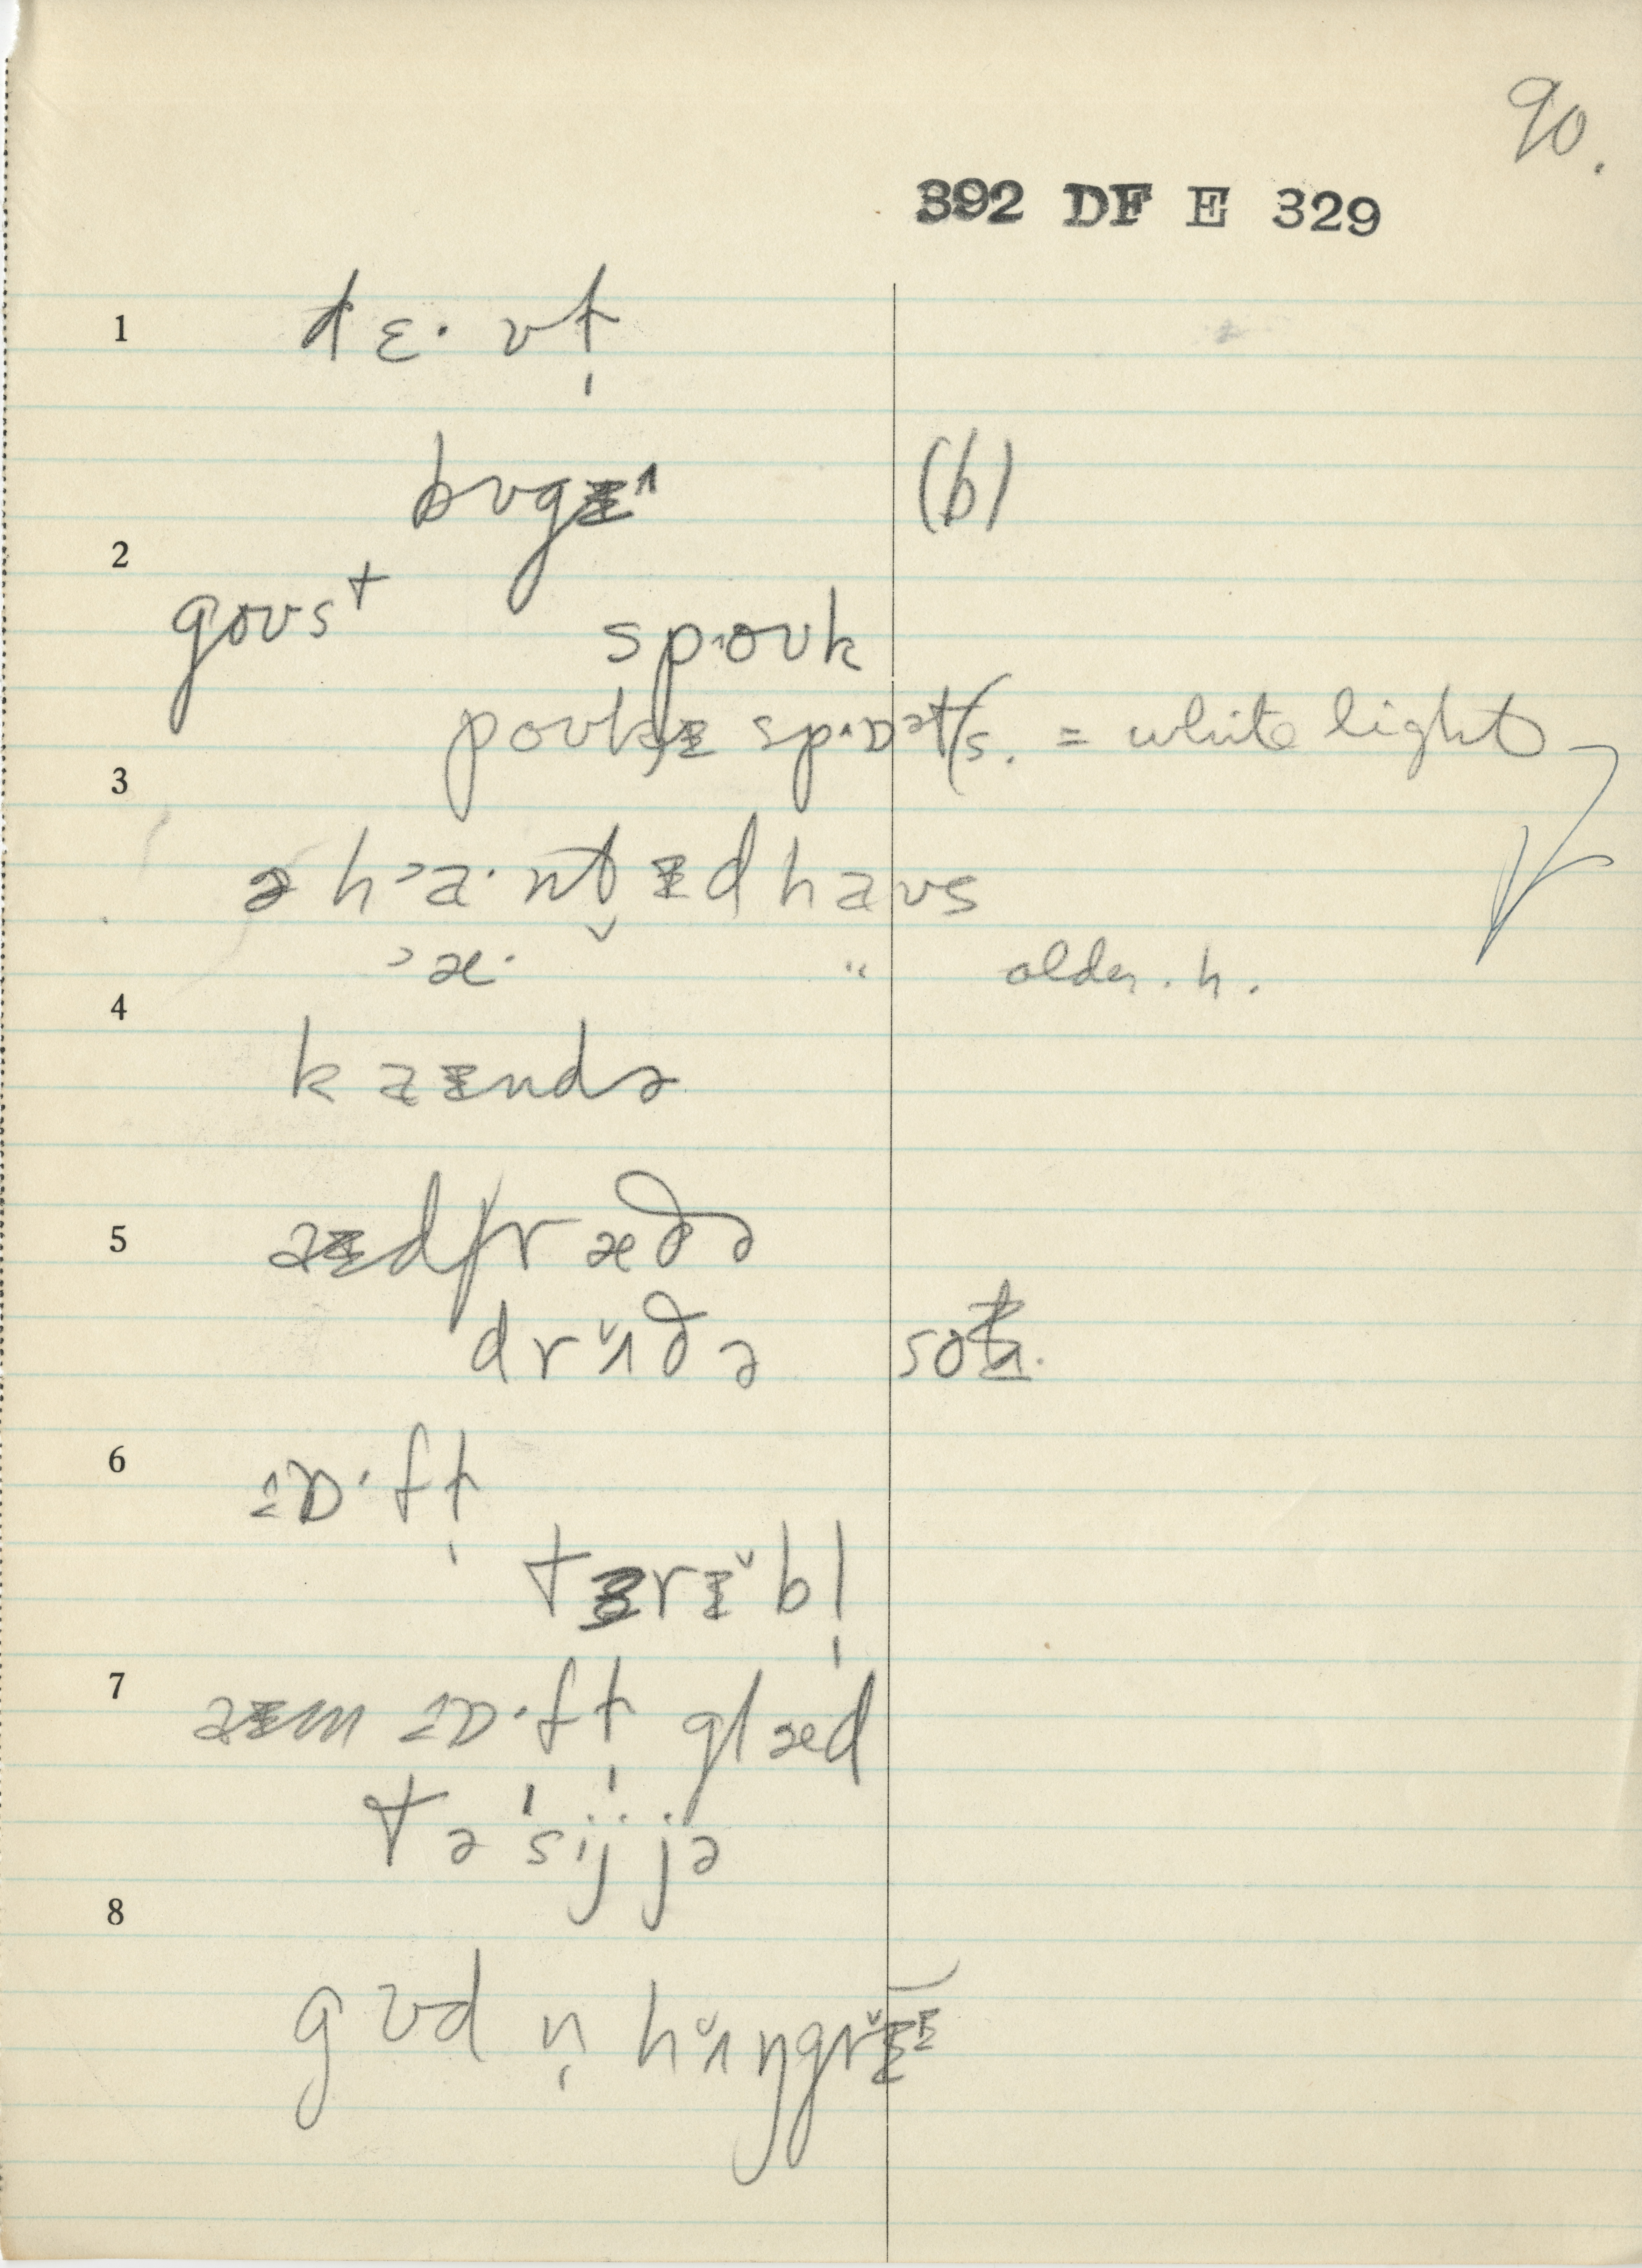 90.
392 DF E 329
1 dɛ· vt̩
bʊgɪ^ (b)
2
goʊst
sp^oʊk
poʊkɪ sp^ɒət/s. = white light
3
ə h>a·ntɪd haʊs
>æ· " older. h.
4
kaɪndə
5 aɪd/ræðə
drʌ̌ðə
6
ɒ·ft̩
tɜrɪ̌bl̩
7 aɪm ɒ·ft̩ glæd
tə'sijjə
8
gʊd n̩ hʌ̌ŋgrɪ̌ɪ